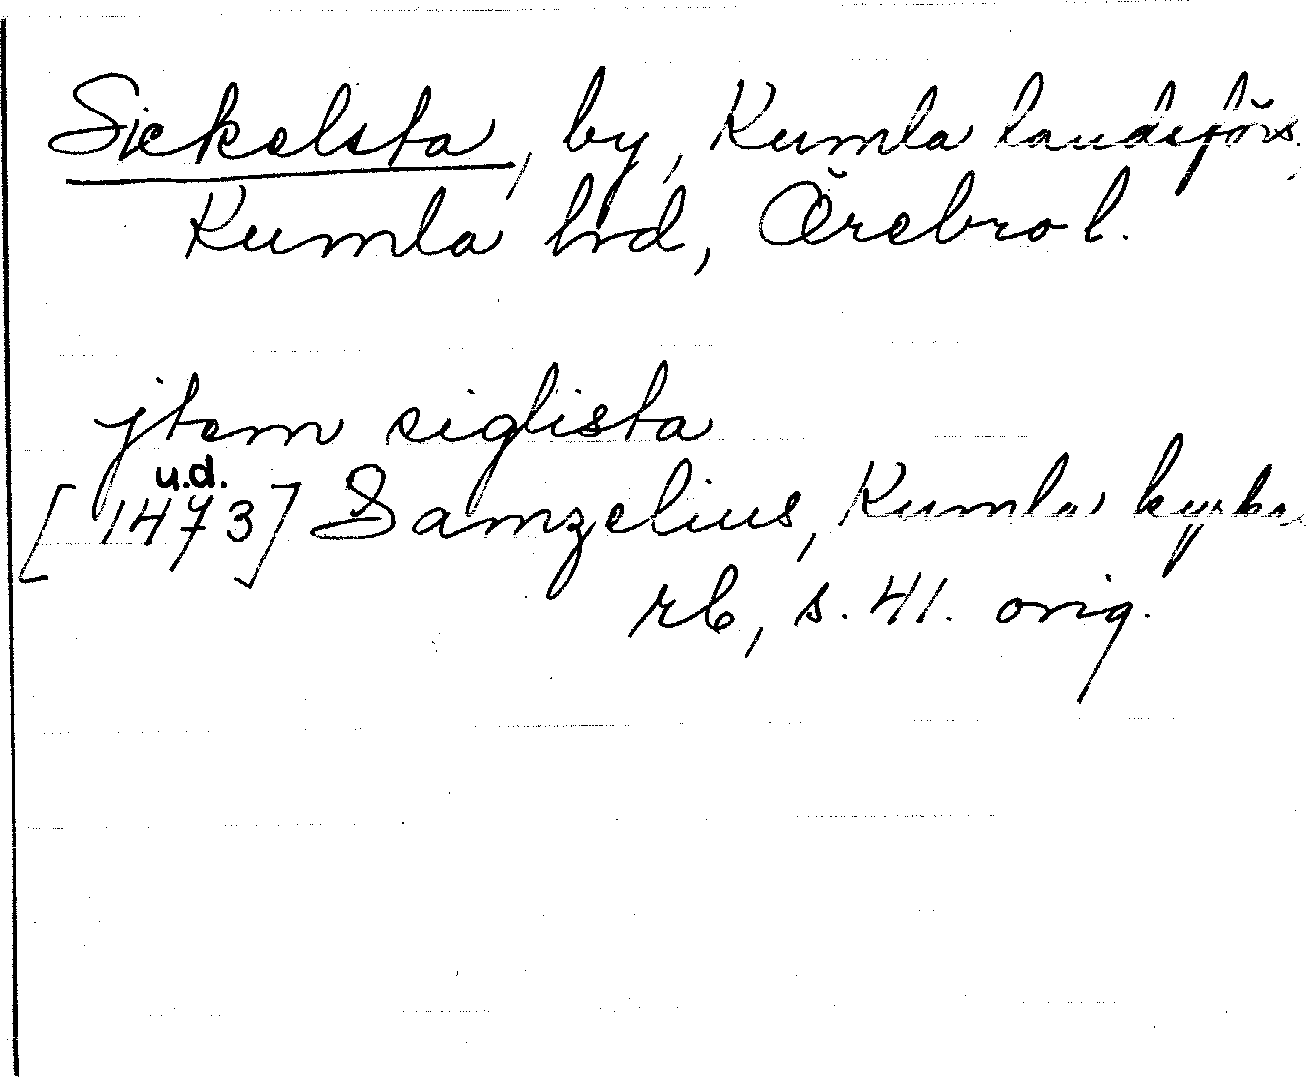 Sickelsta, by, Kumla landsförs.,
Kumla hrd, Örebro l.
jtem siglista
u.d.
[1473] Samzelius, Kumla kyrkas
rb, s. 41. orig.